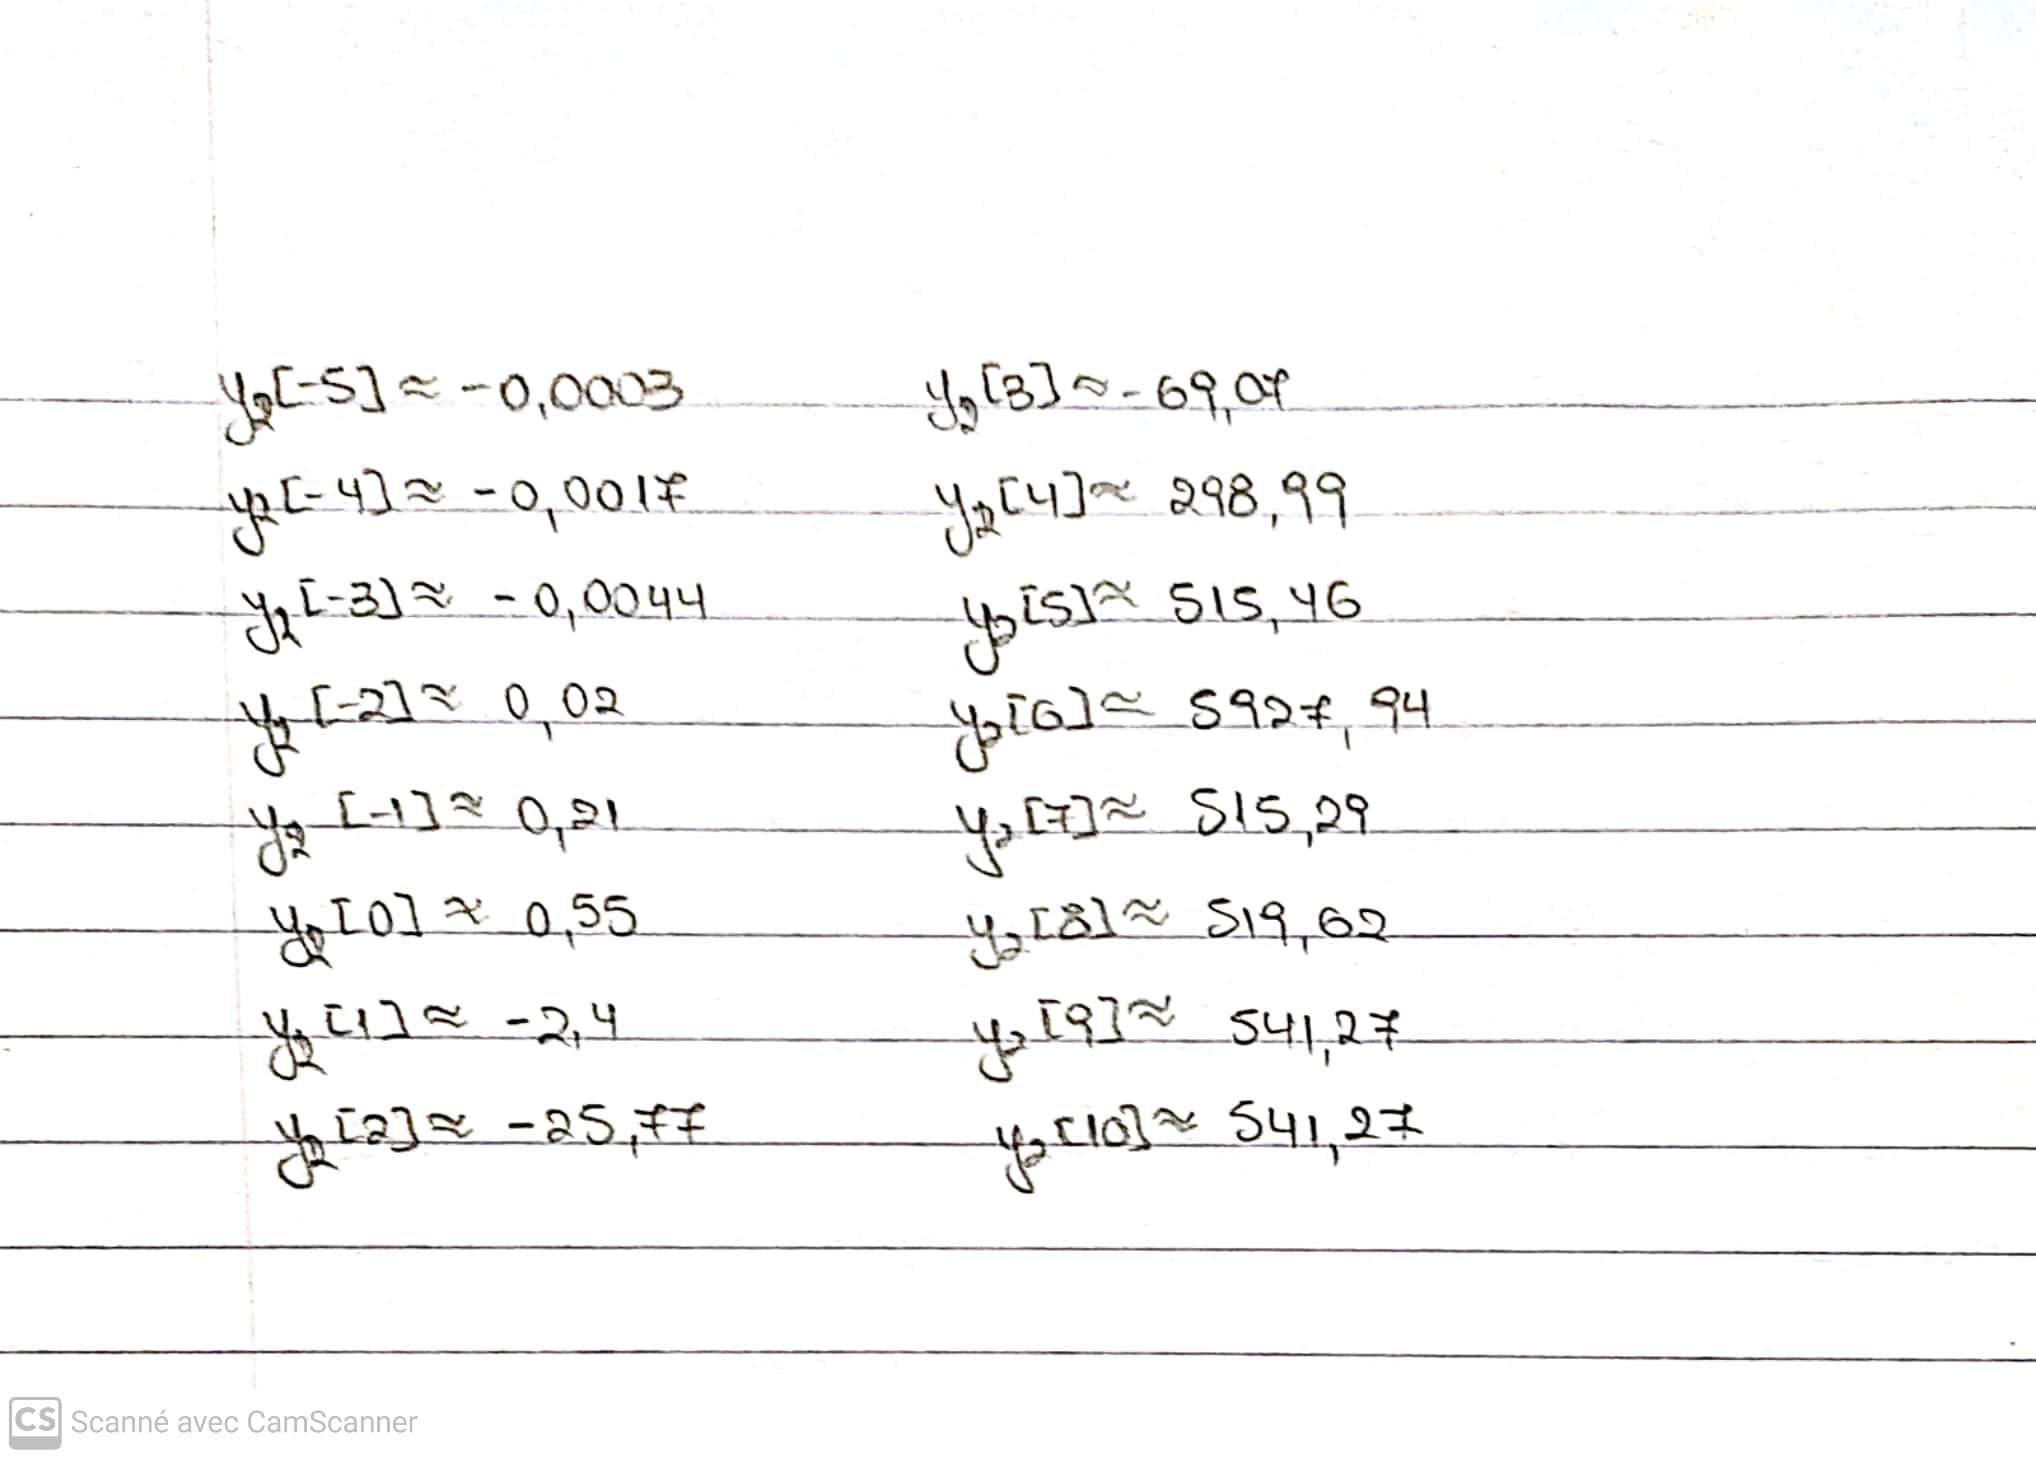 y₂[-5] ≈ -0,0003
y₂[-4] ≈ -0,0017
y₂[-3] ≈ -0,0044
y₂[-2] ≈ 0,02
y₂[-1] ≈ 0,21
y₂[0] ≈ 0,55
y₂[1] ≈ -2,4
y₂[2] ≈ -25,77
y₂[3] ≈ -69,07
y₂[4] ≈ 298,99
y₂[5] ≈ 515,46
y₂[6] ≈ 5927,94
y₂[7] ≈ 515,29
y₂[8] ≈ 519,62
y₂[9] ≈ 541,27
y₂[10] ≈ 541,27
CS Scanné avec CamScanner